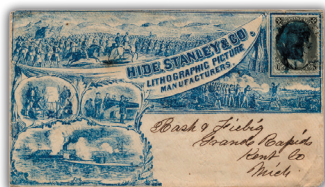 HIDE. STANLEY & CO
LITHOGRAPHIC PICTURE
MANUFACTURERS
Bash & Fiebig
Grand Rapids
Kent Co
Mich